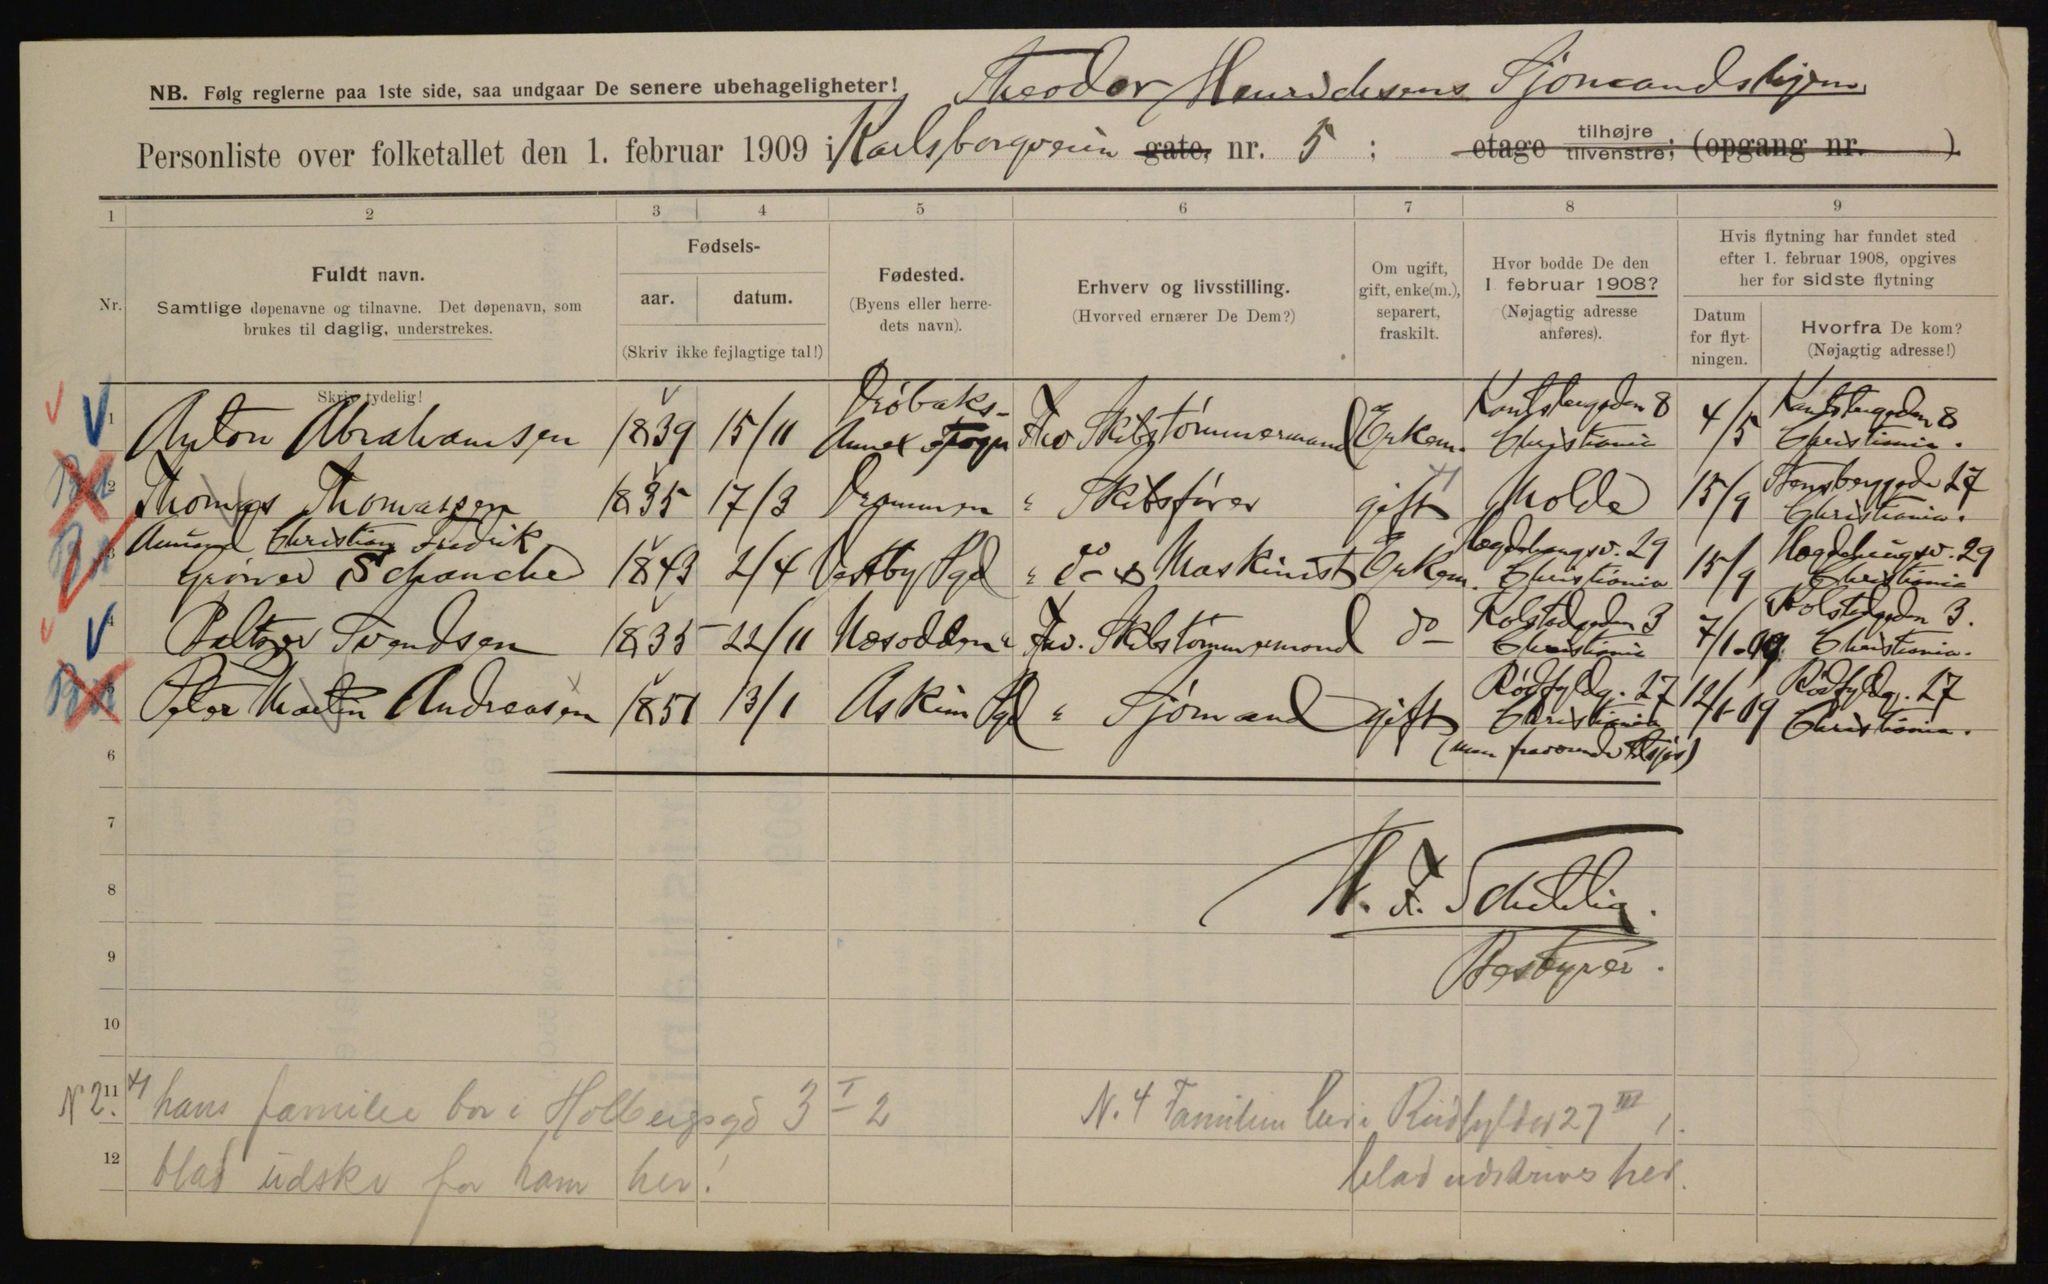 NB. Følg reglerne paa 1ste side, saa undgaar De senere ubehageligheter! Theodor Henrichsens Sjömandshjem
Personliste over folketallet den 1. februar 1909 i Karlsborgveien gate, nr. 5 ; etage tilhøjre tilvenstre; (opgang nr. ).
1 2 3 4 5 6 7 8 9
Nr.
Fuldt navn.
Samtlige døpenavne og tilnavne. Det døpenavn, som
brukes til daglig, understrekes.
Skriv tydelig!
Fødsels-
aar. datum.
(Skriv ikke fejlagtige tal!)
Fødested.
(Byens eller herre-
dets navn).
Erhverv og livsstilling.
(Hvorved ernærer De Dem?)
Om ugift,
gift, enke(m.),
separert,
fraskilt.
Hvor bodde De den
1 februar 1908?
(Nøjagtig adresse
anføres).
Hvis flytning har fundet sted
efter 1. februar 1908, opgives
her for sidste flytning
Datum
for flyt-
ningen.
Hvorfra De kom?
(Nøjagtig adresse!)
1 Anton Abrahamsen 1839 15/11 Drøbaks- Annex Sogn Fhv Skibstømmermand Enkem. 8 Christiania 4/5 8 Christiania.
2 Thomas Thomassen 1835 17/3 Drammen " Skibsfører gift Molde 15/9 Stensberggade 27 Christiania.
3 Christian Fredrik
Grøner Schanche 1843 2/4 Vestby Pgd " do Maskinist Enkem. Hegdehaugsv. 29 Christiania 15/9 Hegdehaugsv. 29 Christiania
4 Baltzer Svendsen 1835 22/11 Næsodden Fhv. Skibstømmermand do Kolstadgaden 3 Christiania 7/1-09 Kolstadgaden 3. Christiania.
5 Peter Martin Andreasen 1851 13/1 Askim Pgd " Sjømand gift Rødfyldg. 27 Christiania 12/1-09 Rødfyldg. 27 Christiania.
6 (men fraværende tilsjøs)
7
8 H. F. Schilling.
9 Bestyrer.
10
11 N 2. hans familie bor i Holbergsgd 3 I 2 N. 4 Familien bor i Rødfylden 27 III 1.
12 blad udskr for ham her! blad udskrives her.